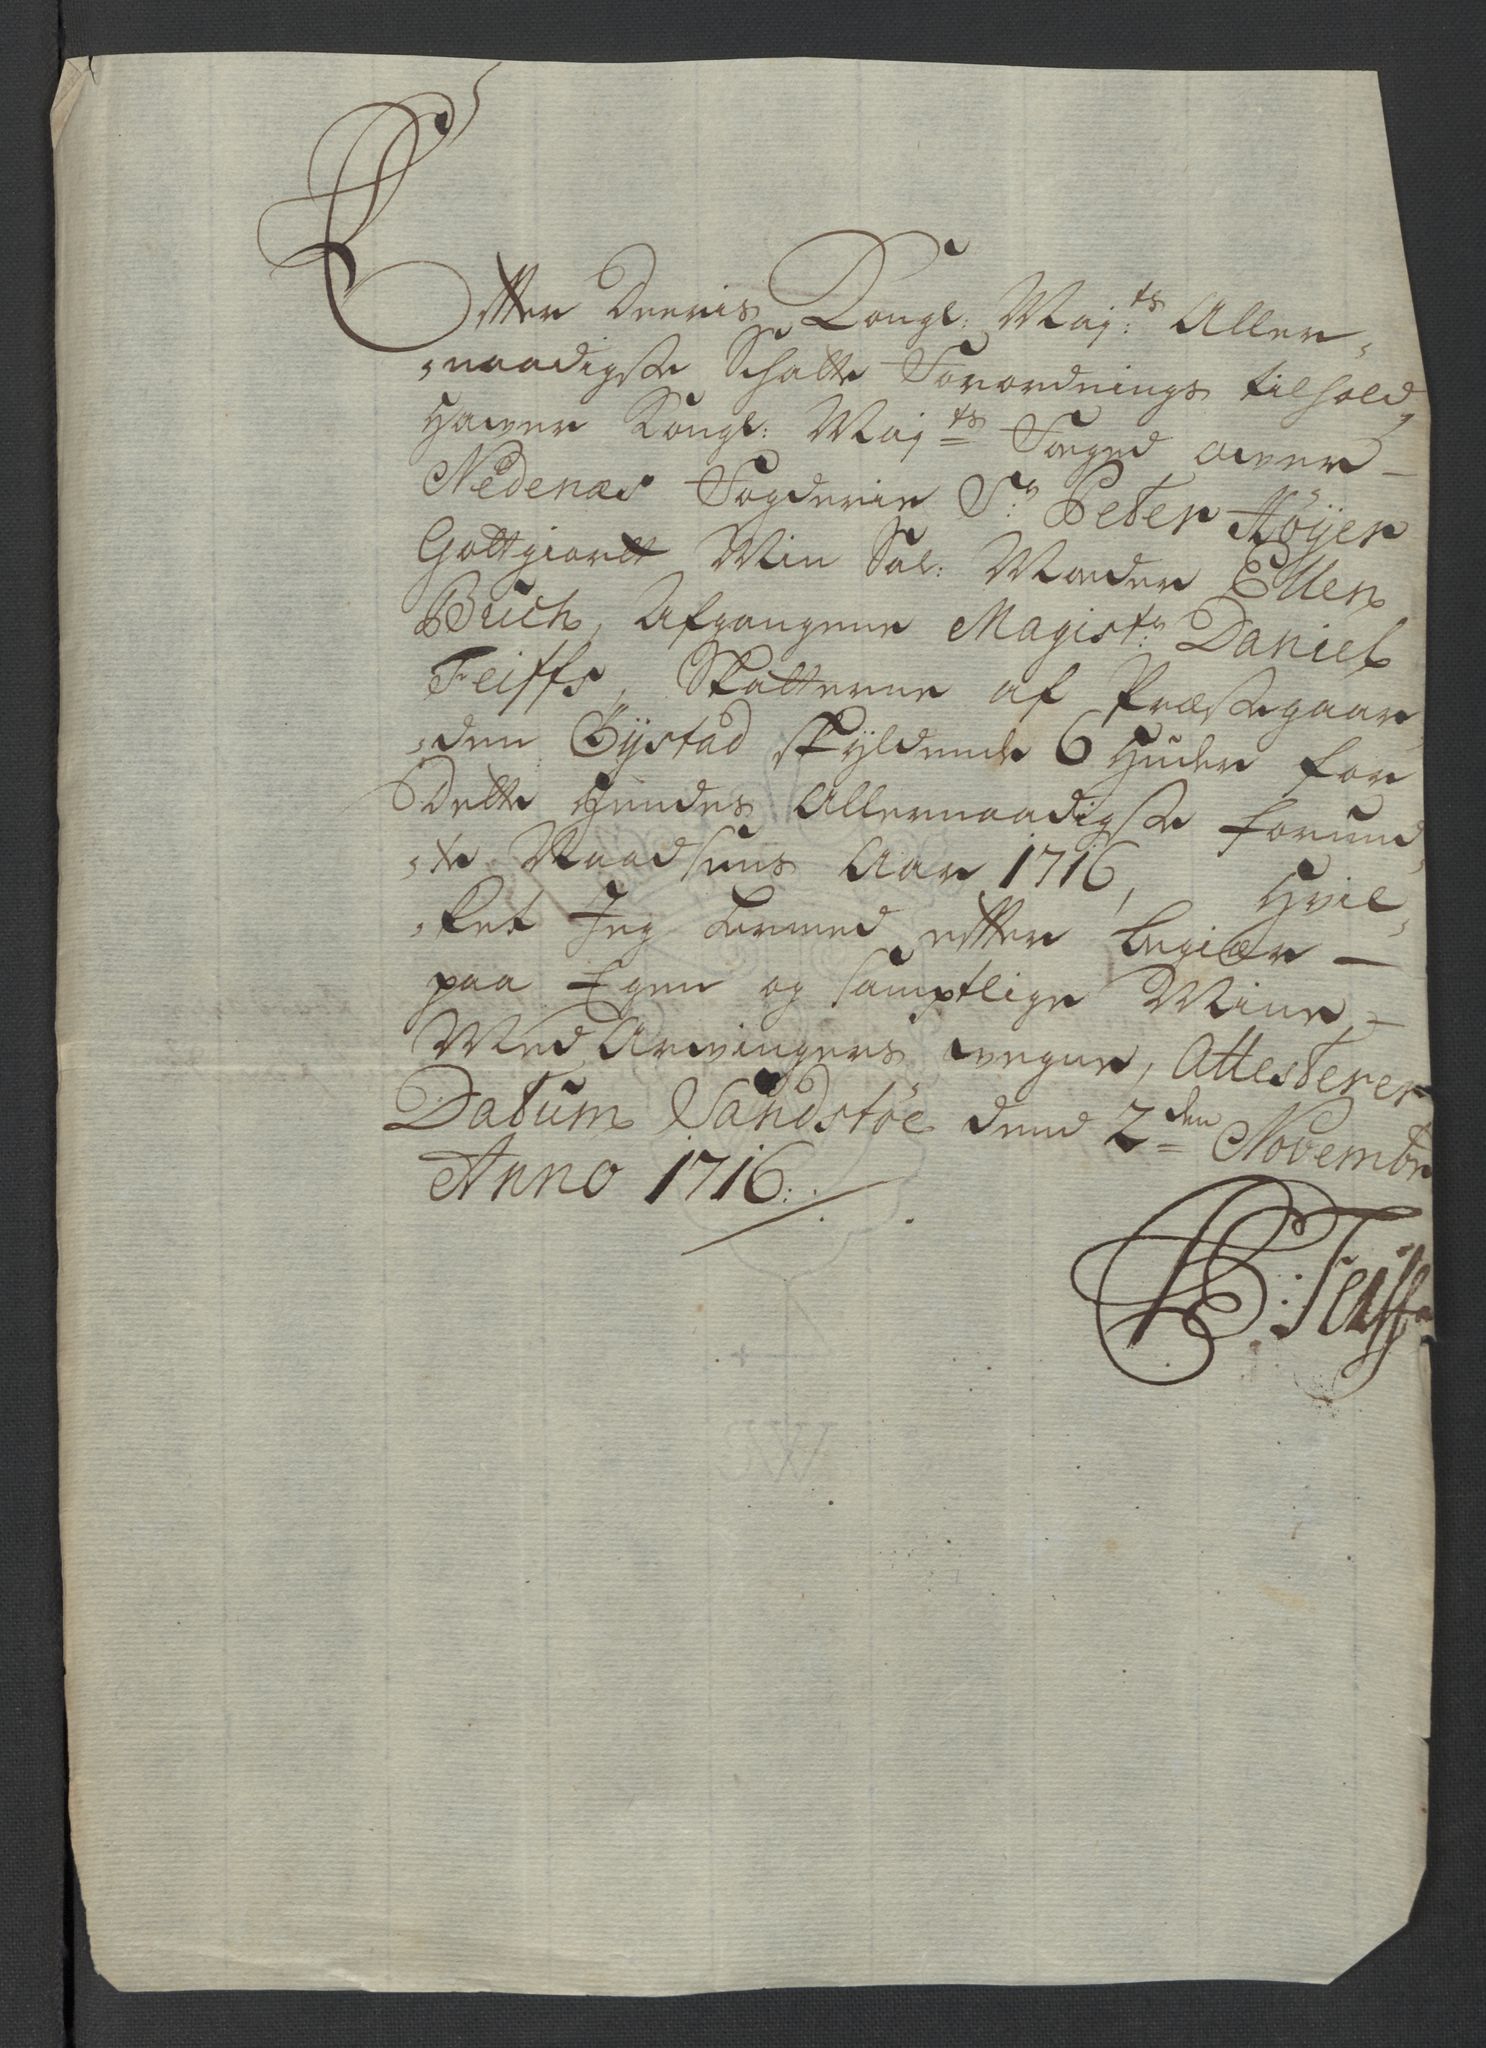 Efter Deeris Kongl: Maj:ts Aller,
,naadigste Schatte Forordnings tilhold,
Hawer Kongl: Maj:ts Foged ower –
Nedenæs Fogderie Sr: Peter Höÿer
Gottgiordt Min Sal: Moder Ellen
Buch, Afgangene Magistr: Daniel
Feiffs, Skatterne af Præstegaar,
,den Öÿstad skÿldende 6 Huder for
Dette hendes Allernaadigste forund,
,te Naadsens Aar 1716, Hvil,
,ket Jeg hermed efter begiær –
paa Egen og samptlige Mine –
Med Arwingers wegne, Attesterer
Datum Sandstöe dend 2den Novembr
Anno 1716:.
Feiff
WC